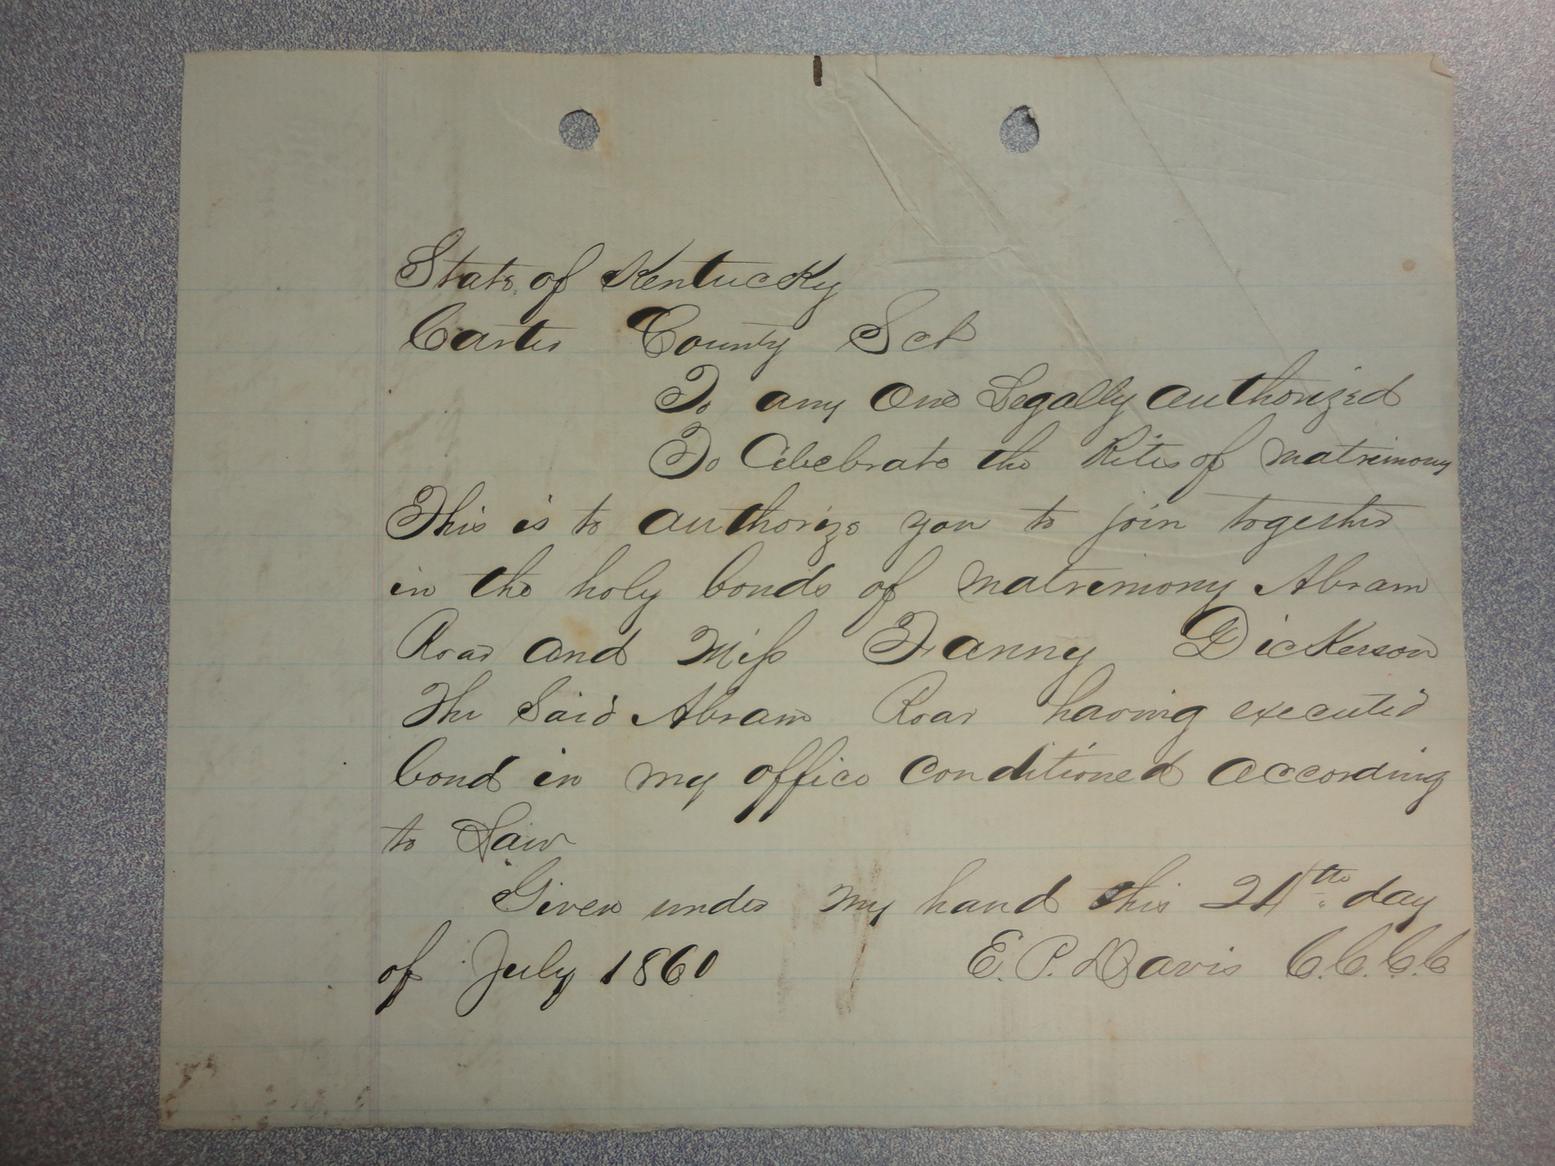 State of Kentucky
Carter County Sct
To any One Legally authorized
To Celebrate the Rites of matrimony
This is to authorize you to join together
in the holy bonds of matrimony Abram
Roar and Miss Fanny Dickerson
The Said Abram Roar having executed
bond in my office conditioned according
to Law
Given under my hand this 24th day
of July 1860 E. P. Davis C.C.C.C